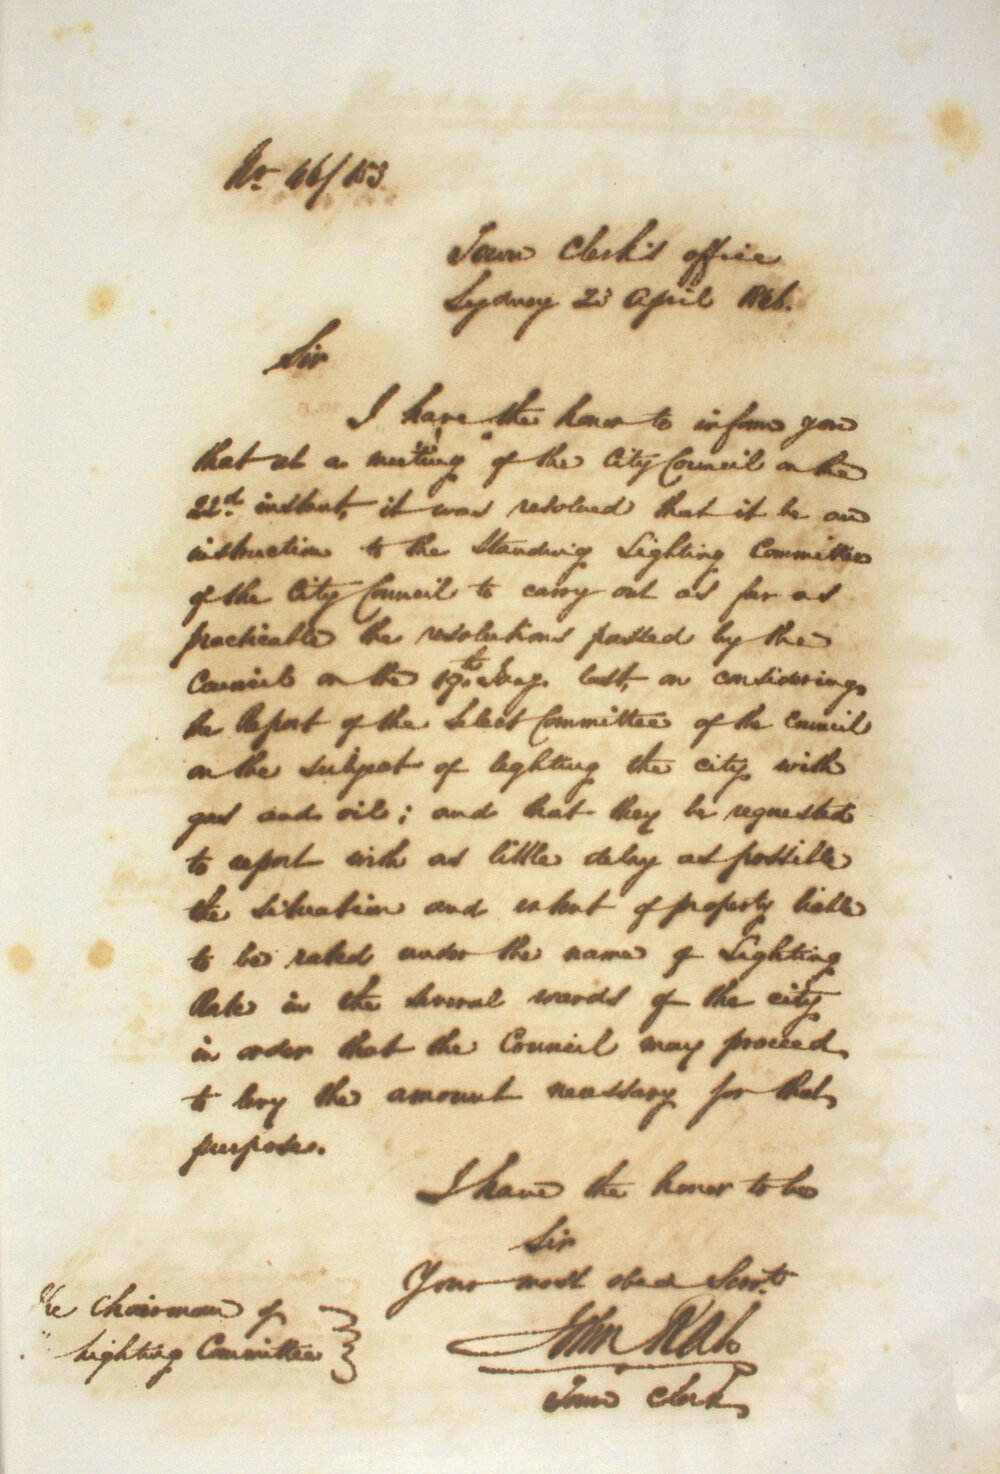 No. 46/153
Town Clerk's office
Sydney 23 April 1846.
Sir
I have the honor to inform you
that at a meeting of the City Council on the
22d. instant, it was resolved that it be an
instruction to the Standing Lighting Committee
of the City Council to carry out as far as
practicable the resolutions passed by the
Council on the 19th. last, on considering
the Report of the Select Committee of the Council
on the subject of lighting the city with
gas and oil; and that they be requested
to report with as little delay as possible
the situation and extent of property liable
to be rated under the name of Lighting
Rate in the several wards of the city
in order that the Council may proceed
to levy the amount necessary for that
purpose.
I have the honor to be
Sir
Your most obed Servt.
John Rae
Town Clerk
The Chairman of
Lighting Committee